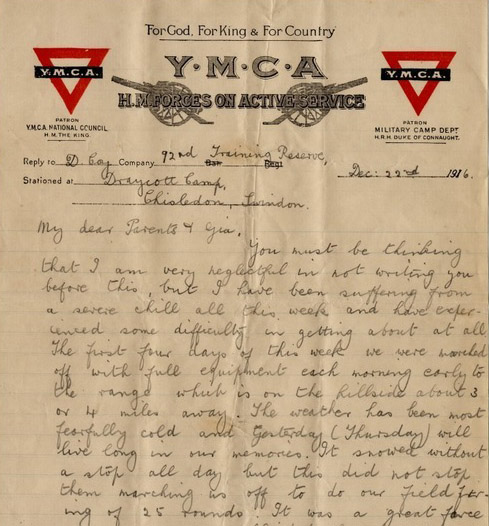 For God, For King & For Country
Y·M·C·A
H.M. FORCES ON ACTIVE SERVICE
Y.M.C.A.
Y.M.C.A.
PATRON
Y.M.C.A. NATIONAL COUNCIL
H.M. THE KING.
PATRON
MILITARY CAMP DEPT
H.R.H. DUKE OF CONNAUGHT.
Reply to D. Coy Company 92nd Training Reserve,
Bat. Regt
Stationed at Draycott Camp, Dec: 22nd 1916.
Chisledon, Swindon.
My dear Parents &
You must be thinking
that I am very neglectful in not writing you
before this, but I have been suffering from
a severe chill all this week and have exper-
ienced some difficulty in getting about at all
The first four days of this week we were marched
off with full equipment each morning early to
the range which is on the hillside about 3
or 4 miles away. The weather has been most
fearfully cold and yesterday (Thursday) will
live long in our memories. It snowed without
a stop all day but this did not stop
them marching us off to do our field fir-
ing of 25 rounds. It was a great force